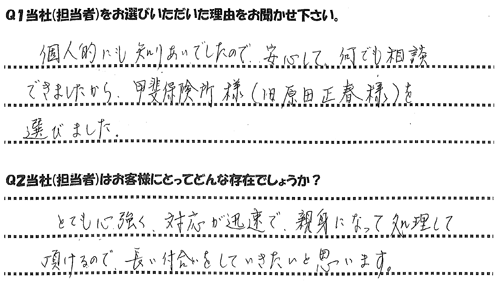 Q1当社(担当者)をお選びいただいた理由をお聞かせ下さい。
個人的にも知りあいでしたので、安心して、何でも相談
できましたから、甲斐保険所様(旧原田正春様)を
選びました。
Q2当社(担当者)はお客様にとってどんな存在でしょうか?
とても心強く、対応が迅速で、親身になって処理して
頂けるので、長い付合いをしていきたいと思います。